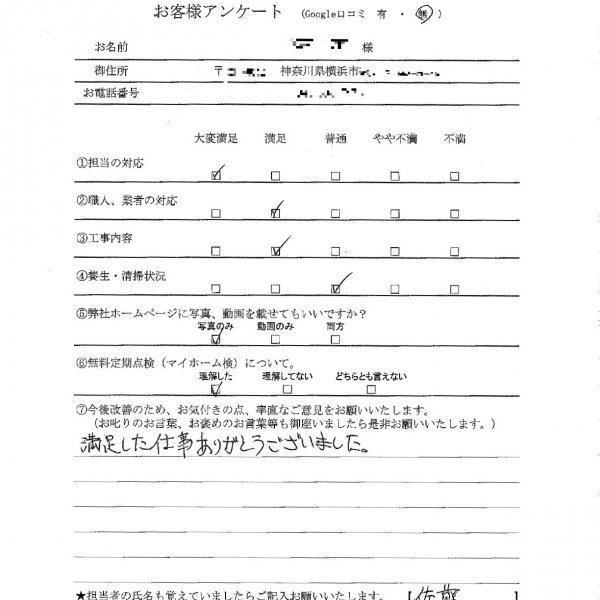 お客様アンケート (Google口コミ 有 ・ 無)
お名前 様
御住所 〒 神奈川県横浜市
お電話番号
大変満足 満足 普通 やや不満 不満
①担当の対応
②職人、業者の対応
③工事内容
④養生・清掃状況
⑤弊社ホームページに写真、動画を載せてもいいですか？
写真のみ 動画のみ 両方
⑥無料定期点検（マイホーム検）について。
理解した 理解してない どちらとも言えない
⑦今後改善のため、お気付きの点、率直なご意見をお願いいたします。
（お叱りのお言葉、お褒めのお言葉等も御座いましたら是非お願いします。）
満足した仕事ありがとうございました。
★担当者の氏名も覚えていましたらご記入お願いいたします。 【佐藤 】